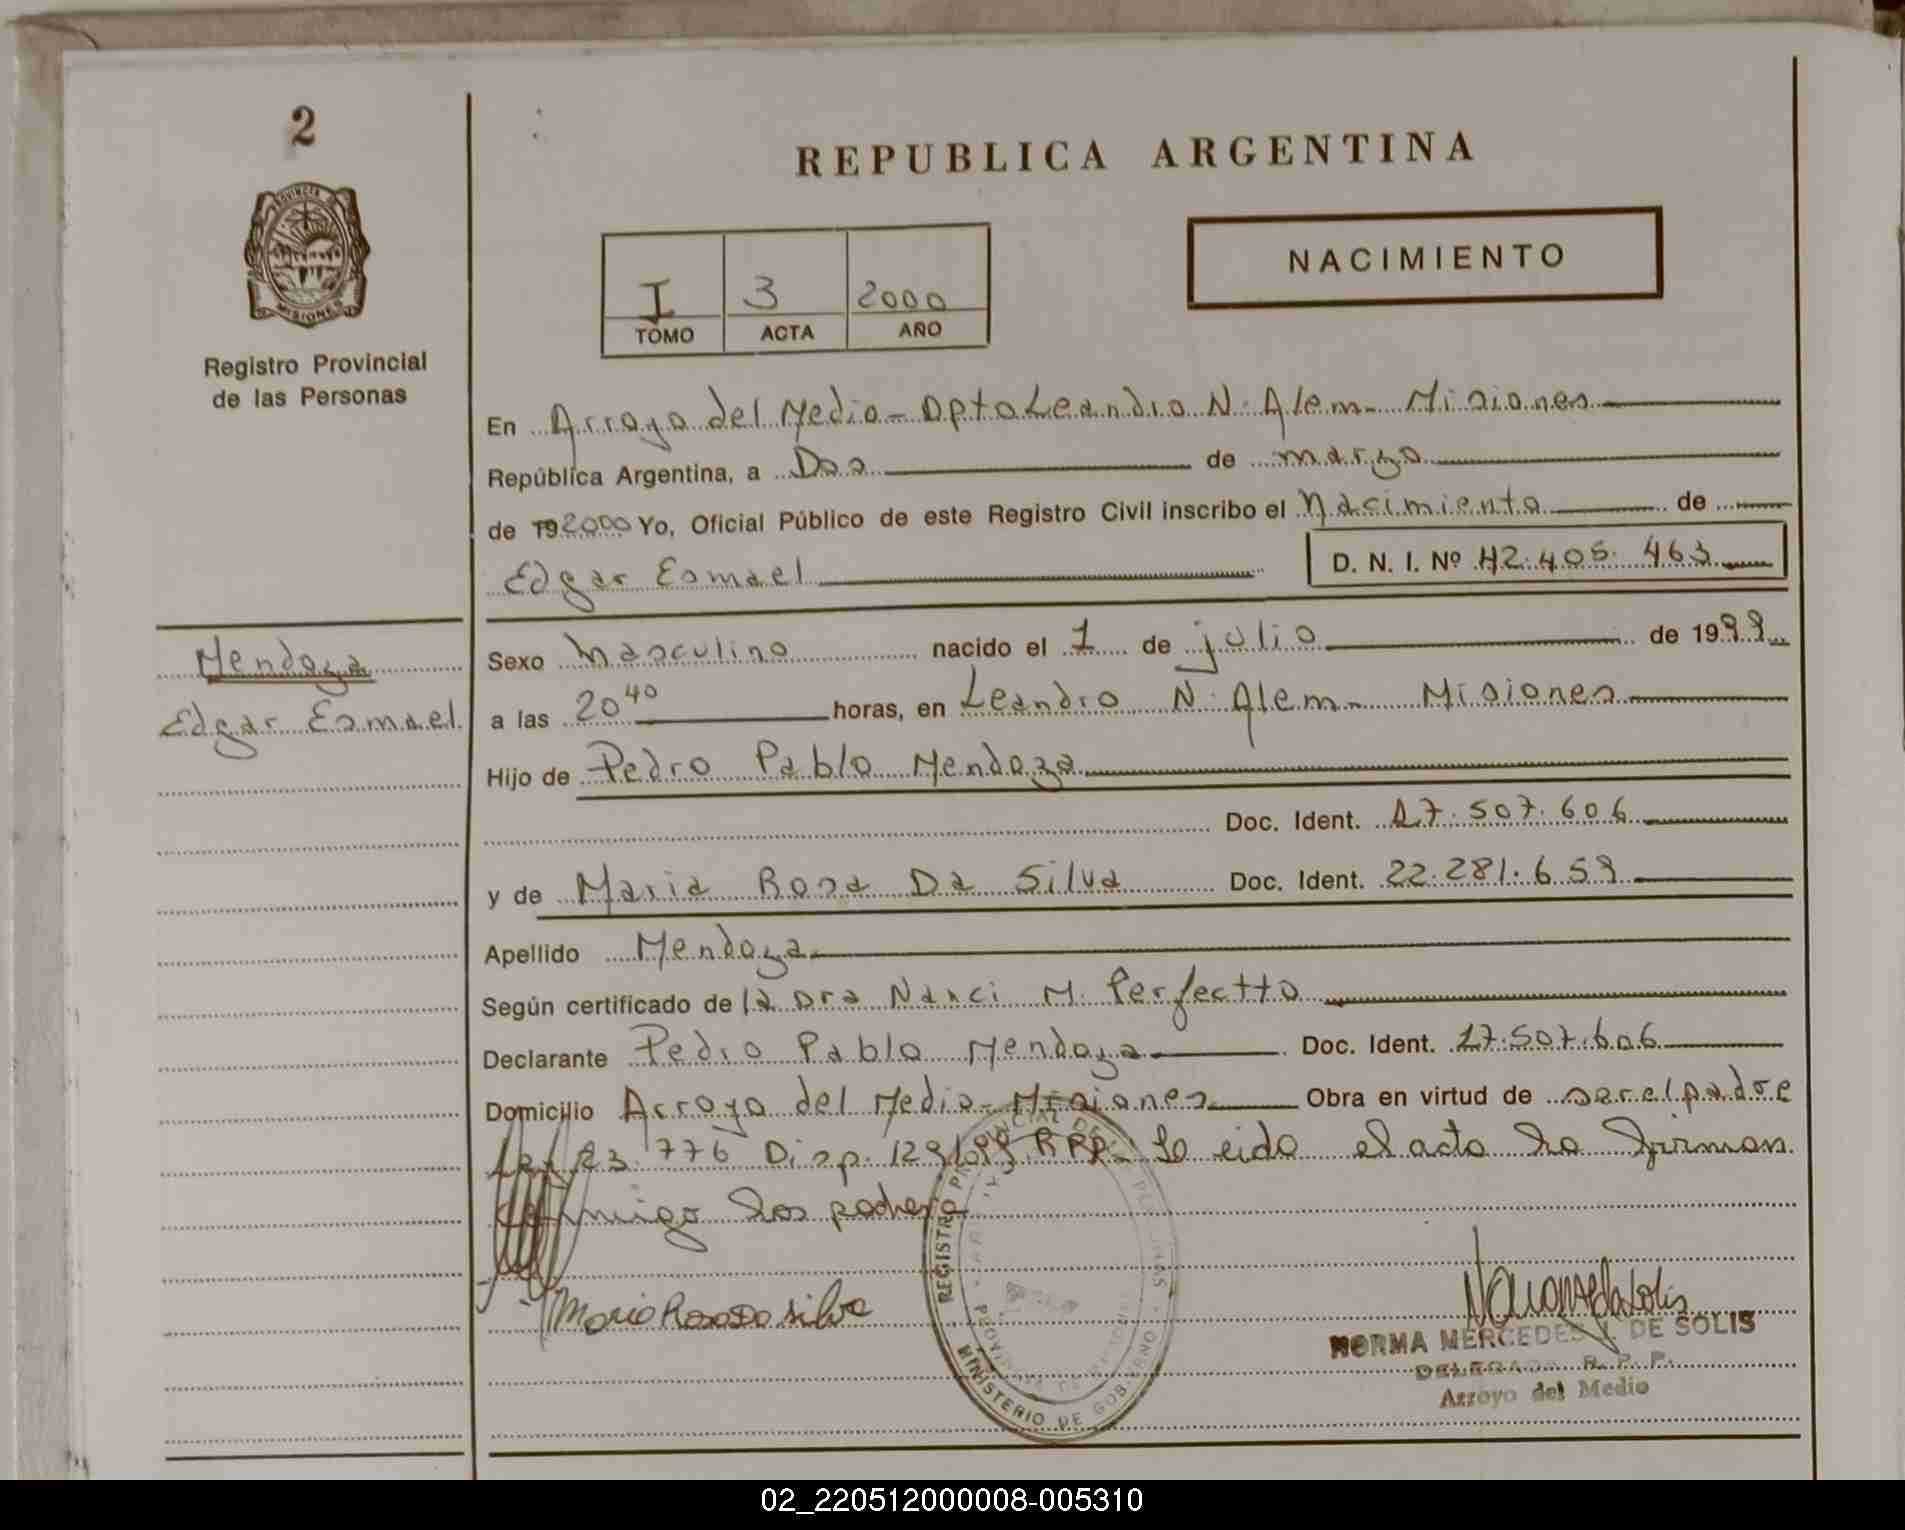 2
REPUBLICA ARGENTINA
PROVINCIA DE
MISIONES
Registro Provincial
de las Personas
I 3 2000
TOMO ACTA AÑO
NACIMIENTO
En Arroyo del Medio - Dpto Leandro N. Alem - Misiones
República Argentina, a Dos de marzo
de 192000 Yo, Oficial Público de este Registro Civil inscribo el Nacimiento de
Edgar Esmael D. N. I. Nº 42.405.463
Mendoza
Edgar Esmael
Sexo Masculino nacido el 1 de julio de 1999
a las 20 40 horas, en Leandro N. Alem - Misiones
Hijo de Pedro Pablo Mendoza
Doc. Ident. 17.507.606
y de Maria Rosa Da Silva Doc. Ident. 22.281.659
Apellido Mendoza
Según certificado de la Dra Nanci M. Perfectto
Declarante Pedro Pablo Mendoza Doc. Ident. 17.507.606
Domicilio Arroyo del Medio - Misiones Obra en virtud de ser el padre
Ley 23.776 Disp. 129/089 RPP - Leido el acta la firman
conmigo los padres
Maria Rosa Da Silva
REGISTRO PROVINCIAL DE LAS
MINISTERIO DE GOBIERNO
NORMA MERCEDES V. DE SOLIS
DELEGADA R. P. P.
Arroyo del Medio
02_220512000008-005310